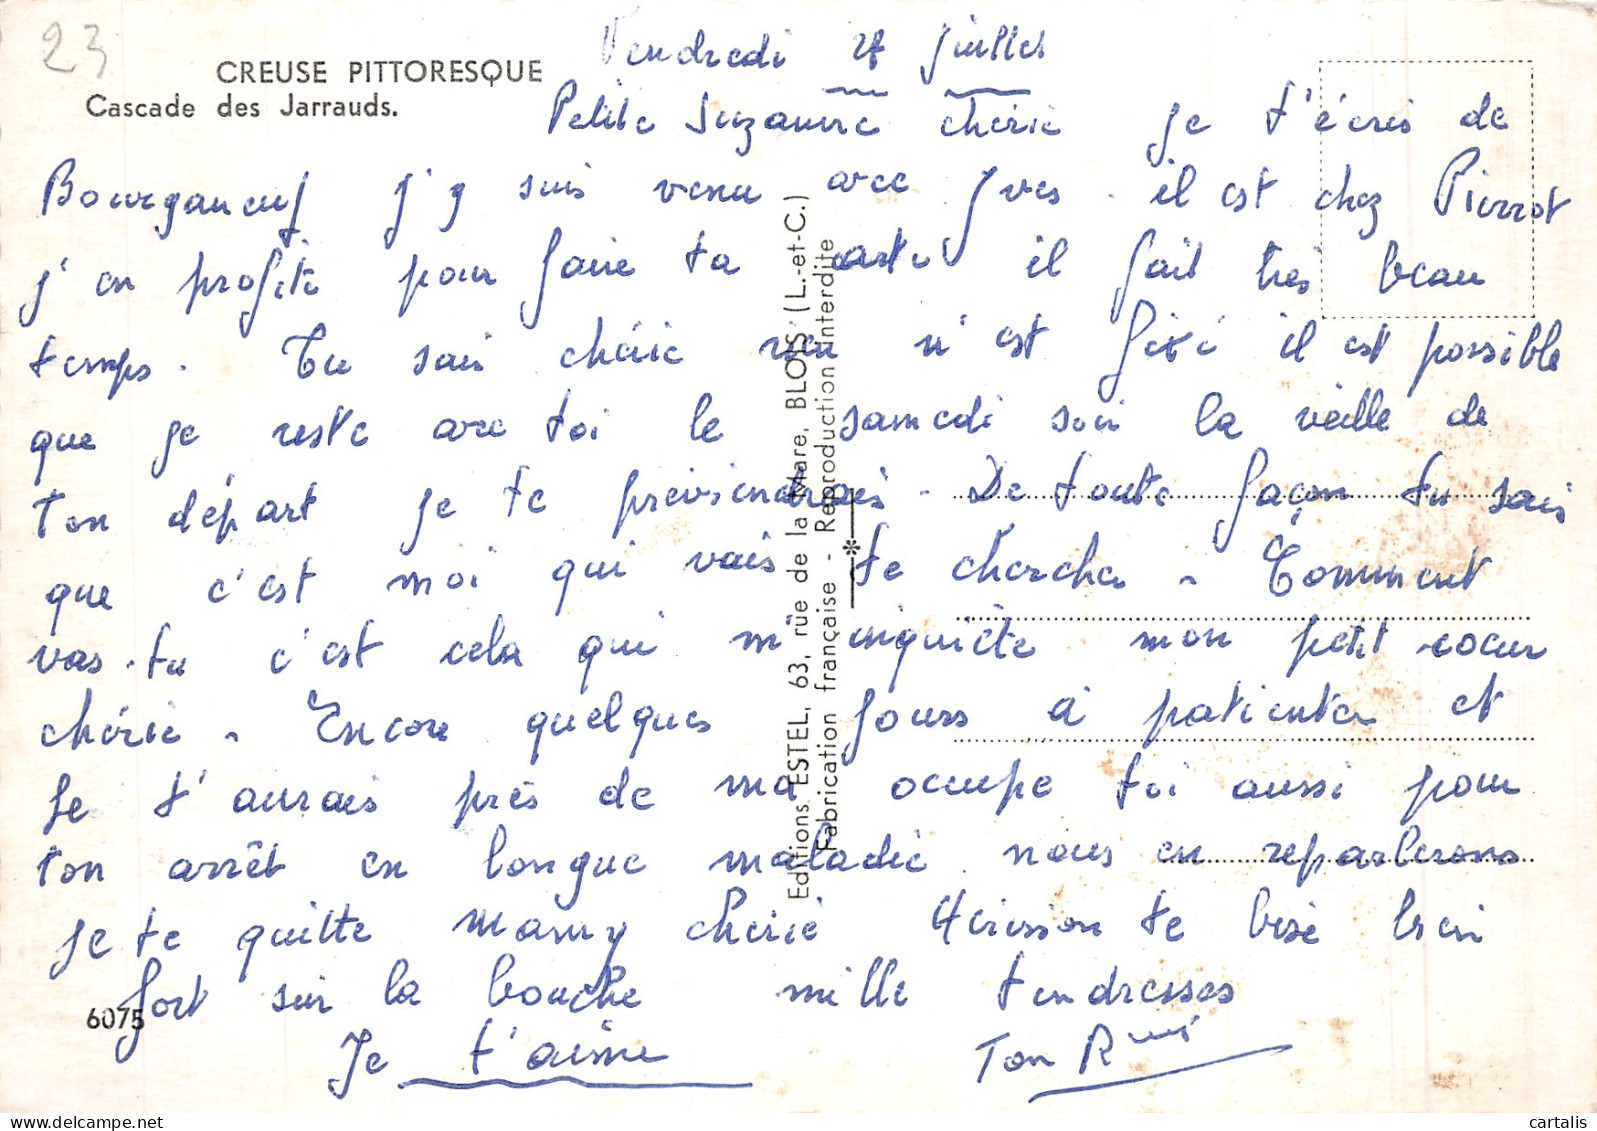 23
CREUSE PITTORESQUE
Cascade des Jarrauds.
Vendredi juillet
Petite Suzanne chérie je t'écris de
Bourganeuf j'y suis venu avec Yves. il est chez Pierrot
j'en profite pour faire ta carte il fait très beau
temps. Tu sais chérie rien n'est fixé il est possible
que je reste avec toi le samedi soir la veille de
ton départ je te préviendrais. De toute façon tu sais
que c'est moi qui vais te chercher. Comment
vas-tu c'est cela qui m'inquiète mon petit coeur
chérie. Encore quelques jours à patienter et
Je t'aurais près de moi occupe toi aussi pour
ton arrêt en longue maladie nous en reparlerons
je te quitte chérie Hérisson te bise bien
fort sur la bouche mille tendresses
Je t'aime Ton
6075
Editions ESTEL, 63, rue de la Mare, BLOIS (L.-et-C.)
Fabrication française - Reproduction interdite
cartalis